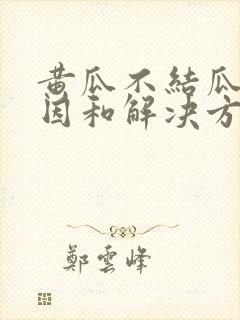 黄瓜不結瓜
因和解决方
鄭雲峰